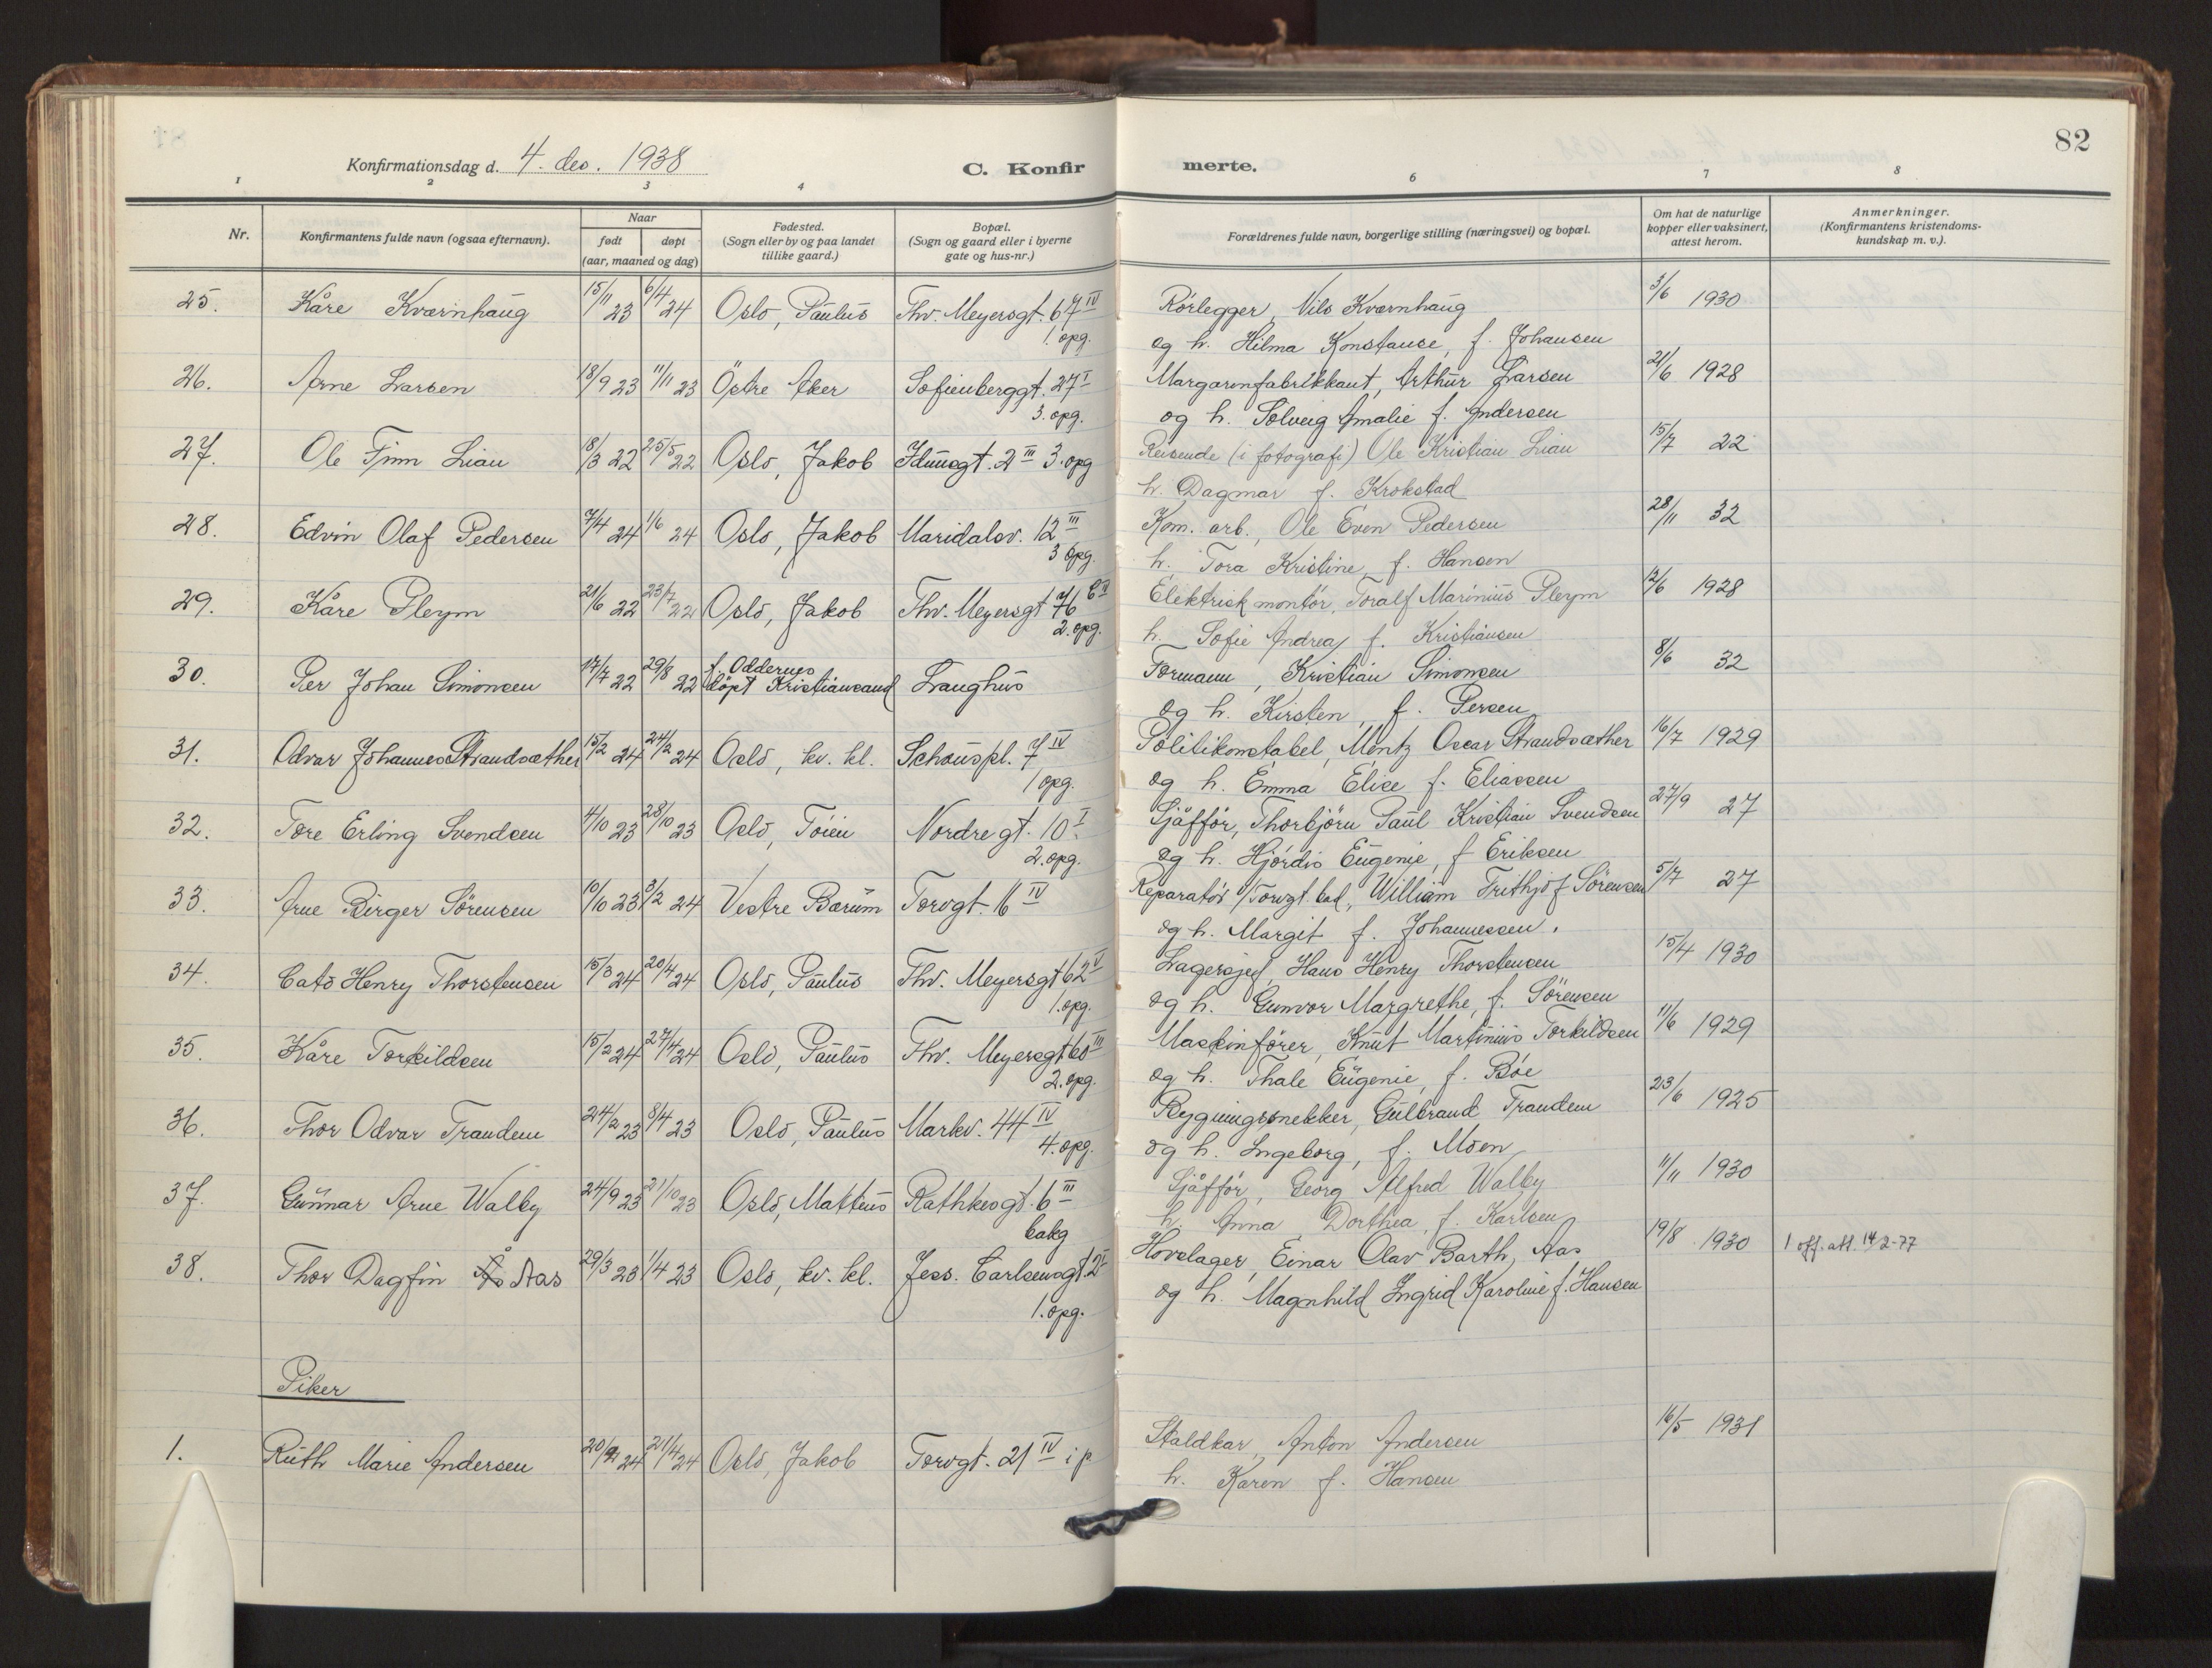 82
Konfirmationsdag d. 4. des. 1938
C. Konfirmerte.
1 2 3 4 6 7 8
Nr.
Konfirmantens fulde navn (ogsaa efternavn).
Naar
født døpt
(aar, maaned og dag)
Fødested.
(Sogn eller by og paa landet
tillike gaard.)
Bopæl.
(Sogn og gaard eller i byerne
gate og hus-nr.)
Forældrenes fulde navn, borgerlige stilling (næringsvei) og bopæl.
Om hat de naturlige
kopper eller vaksinert,
attest herom.
Anmerkninger.
(Konfirmantens kristendoms-
kundskap m. v.).
25. Kåre Kværnhaug 15/11 23 6/4 24 Oslo, Paulus Thv. Meyersgt. 67 IV
1. opg.
Rörlegger, Nils Kværnhaug 3/6 1930
og h. Hilma Konstanse, f. Johansen
26. Arne Larsen 18/9 23 11/11 23 Östre Aker Sofienberggt. 27 I
3. opg.
Margarinfabrikkant, Arthur Larsen 21/6 1928
og h. Solveig Amalie f. Andersen
27. Ole Finn Lian 18/3 22 25/5 22 Oslo, Jakob Idunsgt. 2 III 3. opg
Reisende (i fotografi) Ole Kristian Lian 15/7 22
h. Dagmar f. Krokstad
28. Edvin Olaf Pedersen 7/4 24 1/6 24 Oslo, Jakob Maridalsv. 12 III
3 opg.
Kom. arb., Ole Even Pedersen 28/11 32
h. Tora Kristine, f. Hansen
29. Kåre Pleym 21/6 22 23/7 22 Oslo, Jakob Thv. Meyersgt 76
2. opg.
Elektrisk montör, Toralf Marinius Pleym 12/6 1928
h. Sofie Andrea, f. Kristiansen
30. Per Johan Simonsen 17/7 22 29/8 22 f. Oddernes
döpt Kristiansand Langhus
Formann, Kristian Simonsen 8/6 32
og h. Kirsten, f. Persen
31. Odvar Johannes Strandsæther 15/2 24 24/2 24 Oslo, kv. kl. Schouspl. 7 IV
1 opg.
Politikonstabel, Mentz Oscar Strandsæther 16/7 1929
og h. Emma Elise f. Eliassen
32. Tore Erling Svendsen 4/10 23 28/10 23 Oslo, Töien Nordregt. 10 I
2. opg.
Sjåfför, Thorbjörn Paul Kristian Svendsen 27/9 27
og h. Hjördis Eugenie, f Eriksen
33. Arne Birger Sörensen 10/10 23 3/2 24 Vestre Bærum Torvgt. 16 IV
Reparatör v/Torvgt. bad, William Frithjof Sörensen 5/7 27
og h. Margit f. Johannessen.
34. Cato Henry Thorstensen 15/3 24 20/4 24 Oslo, Paulus Thv. Meyersgt 62 V
1. opg.
Lagersjef, Hans Henry Thorstensen 15/4 1930
og h. Gunvor Margrethe, f. Sörensen
35. Kåre Torkildsen 15/2 24 27/4 24 Oslo, Paulus Thv. Meyersgt 60 III
2. opg.
Maskinförer, Knut Martinius Torkildsen 11/6 1929
og h. Thale Eugenie, f. Böe
36. Thor Odvar Trandem 24/2 23 8/4 23 Oslo, Paulus Markv. 44 IV
4. opg.
Bygningssnekker, Gulbrand Trandem 23/6 1925
og h. Ingeborg, f. Moen
37. Gunnar Arne Walby 24/9 23 21/10 23 Oslo, Matteus Rathkesgt. 6 III
bakg
Sjåfför, Georg Alfred Walby 11/11 1930
h. Anna Dorthea, f. Karlsen
38. Thor Dagfin Ås Aas 29/3 23 1/4 23 Oslo, kv. kl. Jess. Carlsensgt. 2 I
1. opg.
Hovslager, Einar Olav Barth, Aas 19/8 1930 1 off. att. 14/2-77
og h. Magnhild Ingrid Karoline f. Hansen
Piker
1. Ruth Marie Andersen 20/2 24 21/4 24 Oslo, Jakob Torvgt. 21 IV i p
Staldkar, Anton Andersen 16/5 1931
h. Karen f. Hansen